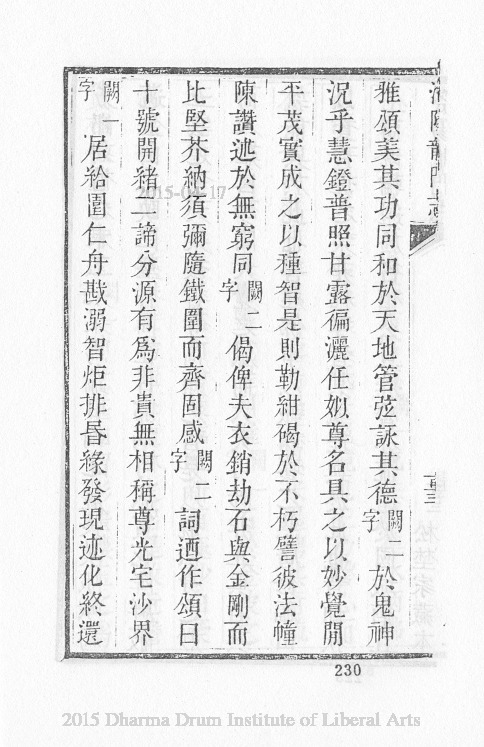 雅頌美其功同和於天地管弦詠其德闕二字於鬼神
況乎慧鐙普照甘露徧灑任姒尊名具之以妙覺開
平茂實成之以種智是則勒紺碣於不朽譬彼法幢
陳讚述於無窮同闕二字偈俾夫衣銷劫石與金剛而
比堅芥納須彌隨鐵圍而齊固感闕二字詞迺作頌曰
十號開緒二諦分源有爲非貴無相稱尊光宅沙界
闕一字居給園仁舟戡溺智炬排昏緣發現迹化終還
230
2015-04-17
2015 Dharma Drum Institute of Liberal Arts